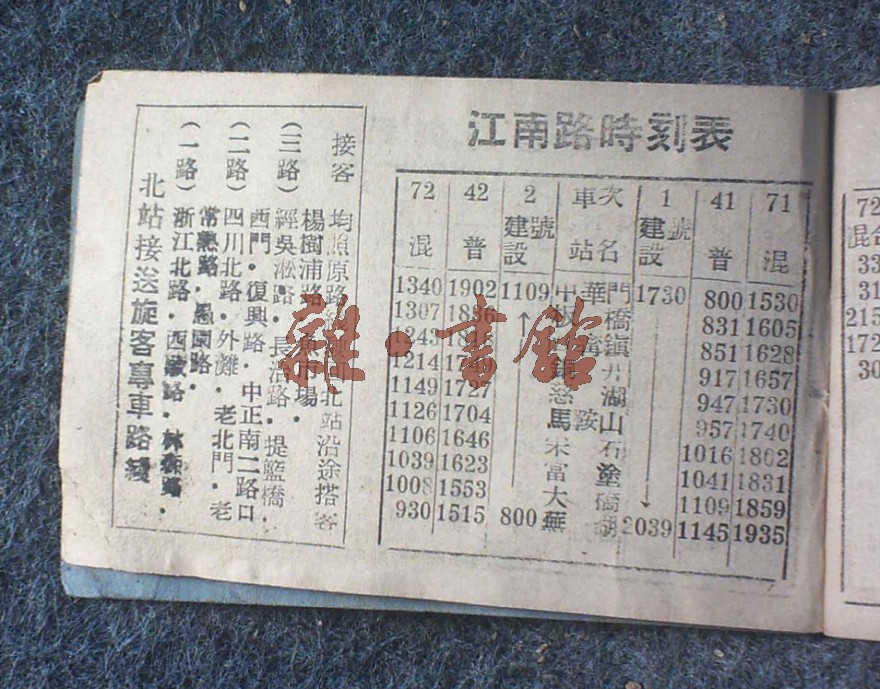 江南路時刻表
72 42 2 車次 1 41 71
混 普 建設號 站名 建設號 普 混
1340 1902 1109 中華門 1730 800 1530
1307 1836 板橋 831 1605
1243 鎮 851 1628
1214 917 1657
1149 1727 慈湖 947 1730
1126 1704 馬鞍山 957 1740
1106 1646 采石 1016 1802
1039 1623 富塗 1041 1831
1008 1553 大橋 1109 1859
930 1515 800 蕪湖 2039 1145 1935
北站接送旋客專車路綫
(一路) 浙江北路·西藏路·林森路·
常熟路·愚園路·
(二路) 四川北路·外灘·老北門·老
西門·復興路·中正南二路口
(三路) 經吳淞路·長治路·提籃橋·
楊樹浦路 魚市場·
接客 均照原路 北站沿途搭客
雜·書館
72
混合
33
31
215
172
30